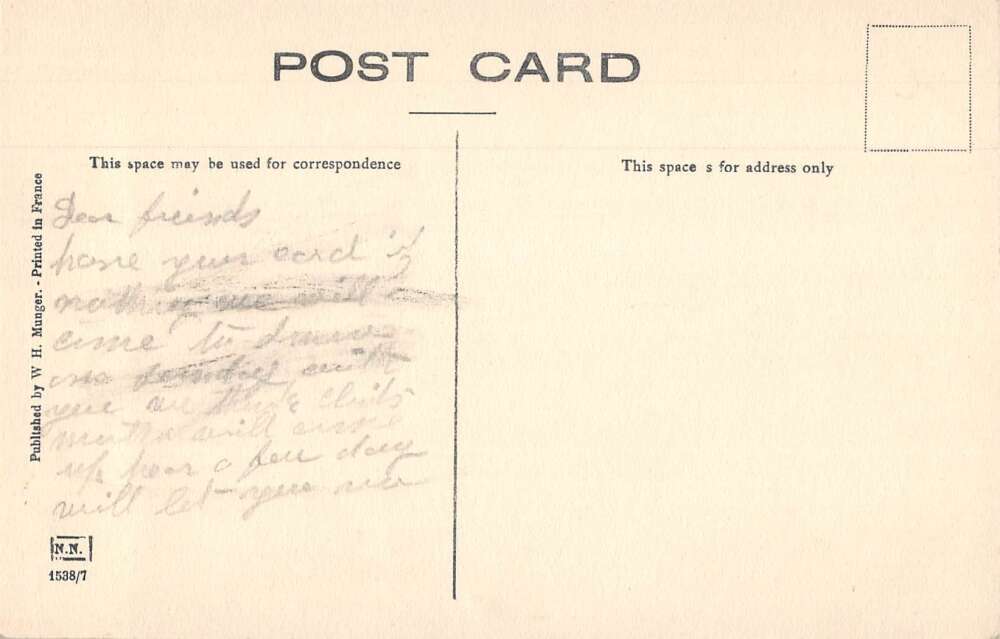 POST CARD
This space may be used for correspondence
This space s for address only
Published by W H. Munger. - Printed in France
Dear friends
have your card if
we will
come to
sunday with
you we think
will come
up hear a few day
will let you
N.N.
1538/7